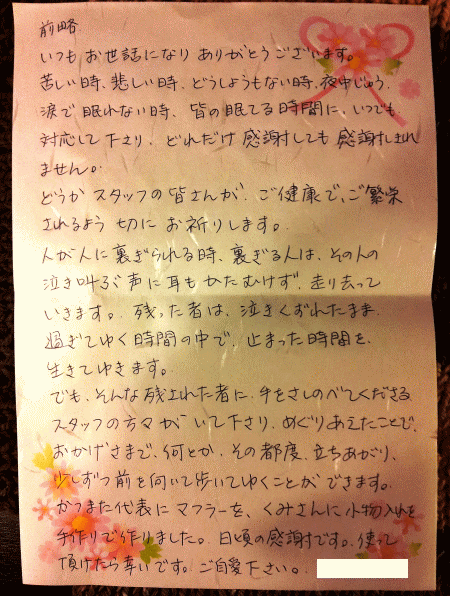 前略
いつもお世話になりありがとうございます。
苦しい時、悲しい時、どうしようもない時、夜中じゅう、
涙で眠れない時、皆の眠てる時間に、いつでも
対応して下さり、どれだけ感謝しても感謝しきれ
ません。
どうかスタッフの皆さんが、ご健康で、ご繁栄
されるよう切にお祈りします。
人が人に裏ぎられる時、裏ぎる人は、その人の
泣き叫ぶ声に耳もかたむけず、走り去って
いきます。残った者は、泣きくずれたまま
過ぎてゆく時間の中で、止まった時間を、
生きてゆきます。
でも、そんな残された者に、手をさしのべてくださる
スタッフの方々がいて下さり、めぐりあえたことで、
おかげさまで、何とか、その都度、立ちあがり、
少しずつ前を向いて歩いてゆくことができます。
かつまた代表にマフラーを、くみさんに小物入れを
手作りで作りました。日頃の感謝です。使って
頂けたら幸いです。ご自愛下さい。